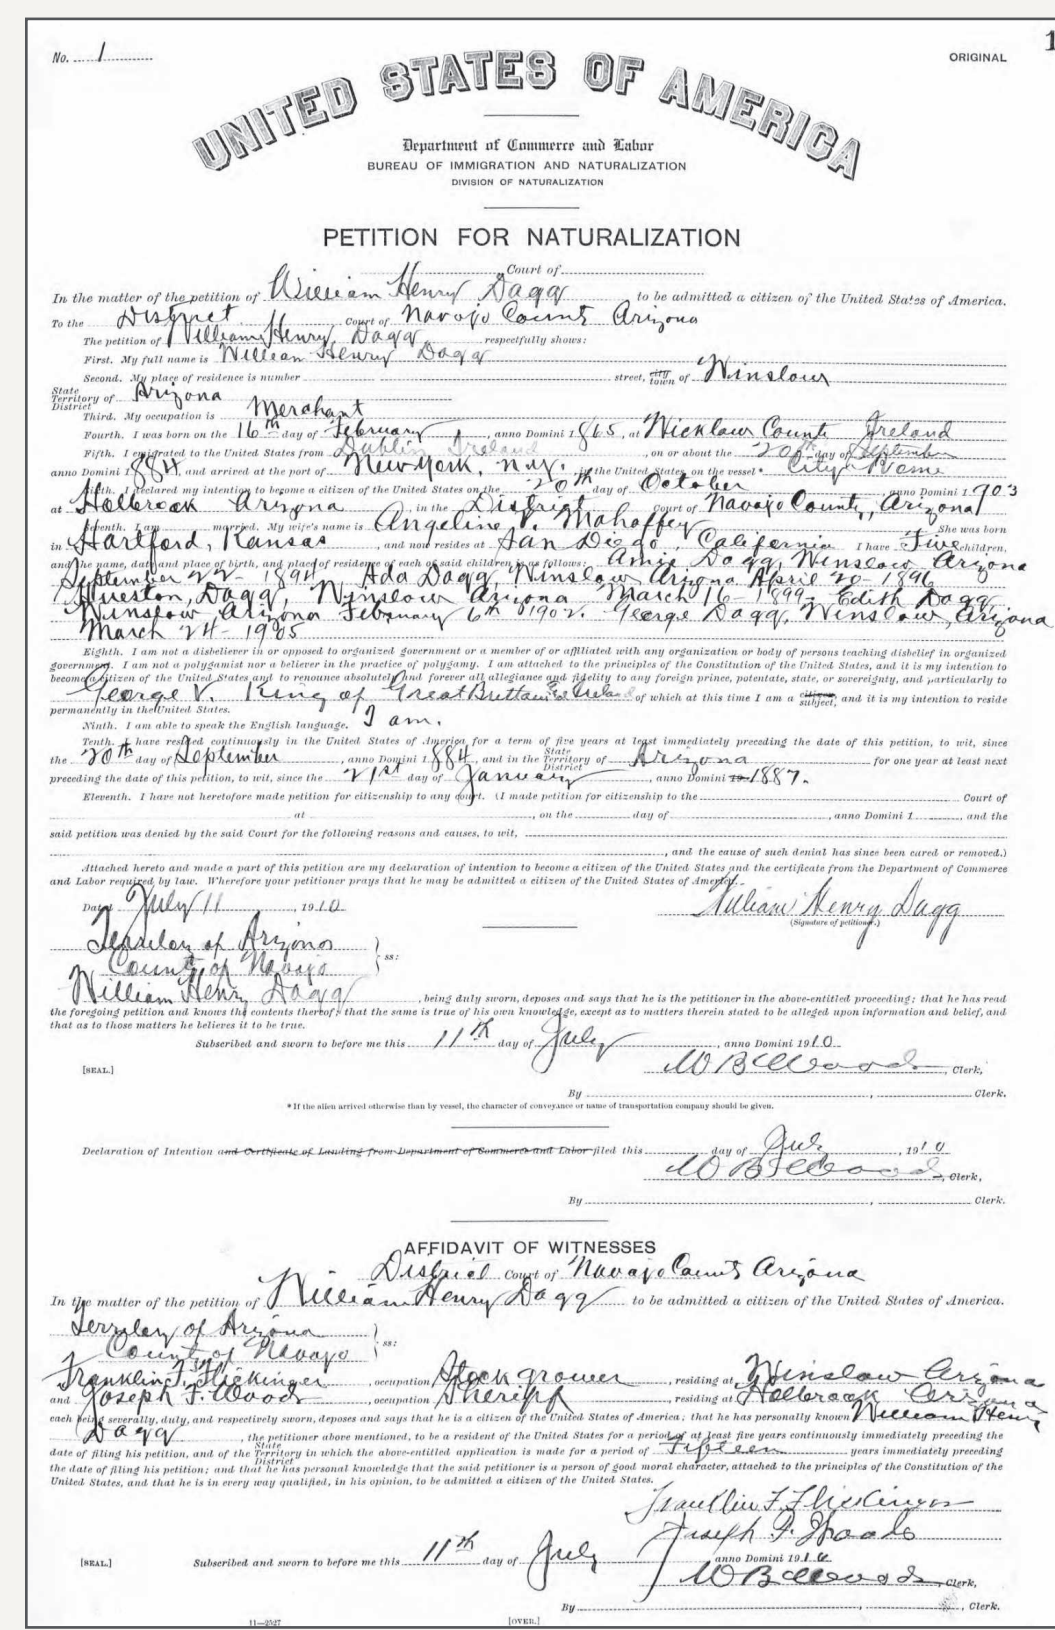 No. 1
ORIGINAL
1
UNITED STATES OF AMERICA
Department of Commerce and Labor
BUREAU OF IMMIGRATION AND NATURALIZATION
DIVISION OF NATURALIZATION
PETITION FOR NATURALIZATION
Court of
In the matter of the petition of William Henry Dagg to be admitted a citizen of the United States of America.
To the District Court of Navajo County Arizona
The petition of William Henry Dagg respectfully shows:
First. My full name is William Henry Dagg
Second. My place of residence is number street, city town of Winslow
State Territory District of Arizona
Third. My occupation is Merchant
Fourth. I was born on the 16th day of February, anno Domini 1865, at Wicklow County Ireland
Fifth. I emigrated to the United States from Dublin Ireland, on or about the 20th day of September
anno Domini 1884, and arrived at the port of New York, N.Y. in the United States on the vessel * City of Rome
Sixth. I declared my intention to become a citizen of the United States on the 20th day of October anno Domini 1903
at Holbrook Arizona in the District Court of Navajo County, Arizona
Seventh. I am married. My wife's name is Angeline V. Mahaffey She was born
in Hartford, Kansas, and now resides at San Diego, California I have Five children,
and the name, date and place of birth, and place of residence of each of said children is as follows: Amie Dagg, Winslow Arizona
September 22 - 1894 Ada Dagg, Winslow Arizona April 20 - 1896
Hueston, Dagg, Winslow Arizona March 16 - 1899 - Edith Dagg,
Winslow Arizona February 6th 1902. George Dagg, Winslow, Arizona
March 24 - 1905
Eighth. I am not a disbeliever in or opposed to organized government or a member of or affiliated with any organization or body of persons teaching disbelief in organized
government. I am not a polygamist nor a believer in the practice of polygamy. I am attached to the principles of the Constitution of the United States, and it is my intention to
become a citizen of the United States and to renounce absolutely and forever all allegiance and fidelity to any foreign prince, potentate, state, or sovereignty, and particularly to
George V. King of Great Brittain & Ireland of which at this time I am a citizen subject, and it is my intention to reside
permanently in the United States.
Ninth. I am able to speak the English language. I am.
Tenth. I have resided continuously in the United States of America for a term of five years at least immediately preceding the date of this petition, to wit, since
the 20th day of September, anno Domini 1884, and in the State Territory District of Arizona for one year at least next
preceding the date of this petition, to wit, since the 21st day of January, anno Domini 1887.
Eleventh. I have not heretofore made petition for citizenship to any court. (I made petition for citizenship to the Court of
at, on the day of, anno Domini 1, and the
said petition was denied by the said Court for the following reasons and causes, to wit,
, and the cause of such denial has since been cured or removed.)
Attached hereto and made a part of this petition are my declaration of intention to become a citizen of the United States and the certificate from the Department of Commerce
and Labor required by law. Wherefore your petitioner prays that he may be admitted a citizen of the United States of America.
Dated July 11, 1910
William Henry Dagg
(Signature of petitioner.)
Territory of Arizona
County of Navajo } ss:
William Henry Dagg, being duly sworn, deposes and says that he is the petitioner in the above-entitled proceeding; that he has read
the foregoing petition and knows the contents thereof; that the same is true of his own knowledge, except as to matters therein stated to be alleged upon information and belief, and
that as to those matters he believes it to be true.
Subscribed and sworn to before me this 11th day of July, anno Domini 1910
[SEAL.]
W B Woods, Clerk,
By, Clerk.
* If the alien arrived otherwise than by vessel, the character of conveyance or name of transportation company should be given.
Declaration of Intention and Certificate of Landing from Department of Commerce and Labor filed this day of July, 1910
W B Woods, Clerk,
By, Clerk.
AFFIDAVIT OF WITNESSES
District Court of Navajo County Arizona
In the matter of the petition of William Henry Dagg to be admitted a citizen of the United States of America.
Territory of Arizona
County of Navajo } ss:
Franklin F. Flickinger, occupation Stock grower, residing at Winslow Arizona
and Joseph F. Woods, occupation Sheriff, residing at Holbrook Arizona
each being severally, duly, and respectively sworn, deposes and says that he is a citizen of the United States of America; that he has personally known William Henry
Dagg, the petitioner above mentioned, to be a resident of the United States for a period of at least five years continuously immediately preceding the
date of filing his petition, and of the State Territory District in which the above-entitled application is made for a period of Fifteen years immediately preceding
the date of filing his petition; and that he has personal knowledge that the said petitioner is a person of good moral character, attached to the principles of the Constitution of the
United States, and that he is in every way qualified, in his opinion, to be admitted a citizen of the United States.
Franklin F. Flickinger
Joseph F. Woods
[SEAL.]
Subscribed and sworn to before me this 11th day of July anno Domini 1910
W B Woods, Clerk,
By, Clerk.
11—2527
[OVER.]